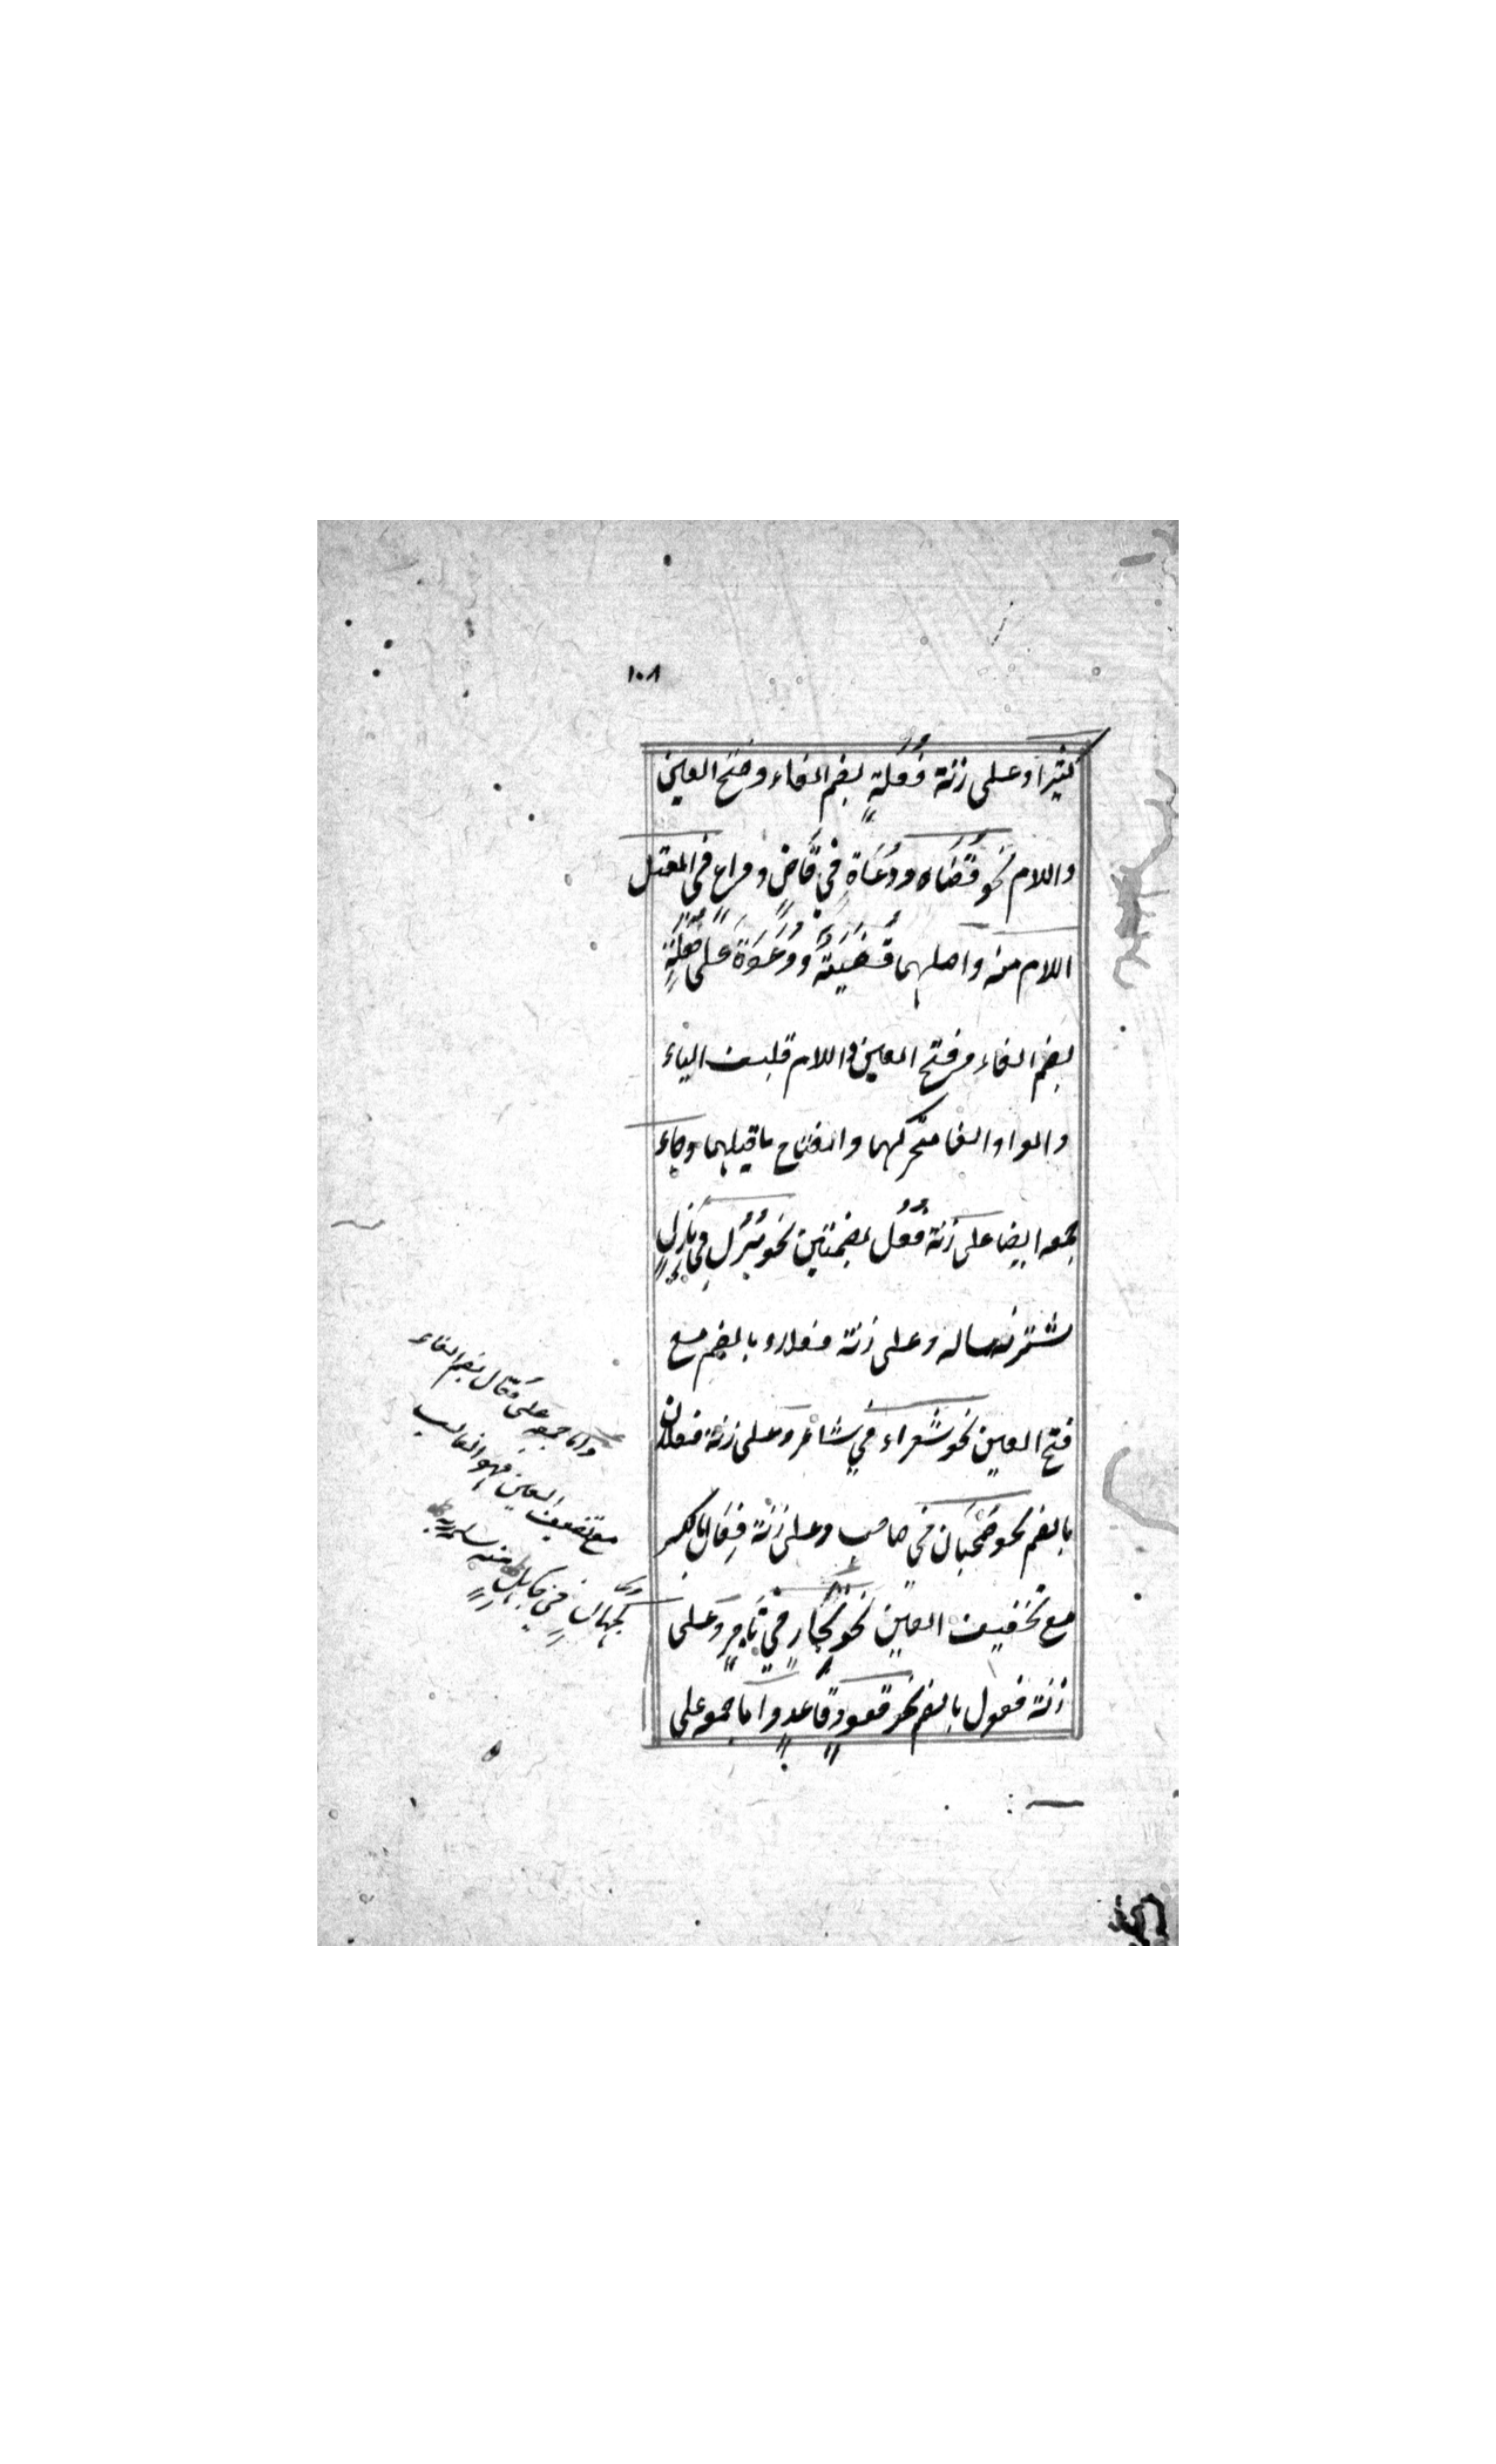 ١٠٨
كثيرا وعلى زنة فُعَلَةٍ بضم الفاء وفتح العين
واللام نحو قُضَاه ودُعَاةٍ في قَاضٍ وداعٍ في المعتل
اللام منه واصلهما قُضَيَةٌ ودُعَوَةٌ على فُعَلَةٍ
بضم الفاء وفتح العين واللام قلبت الياء
والواو الفا لتحركهما وانفتاح ما قبلهما وجاء
جمعه ايضا على زنة فُعُل بضمتين نحو بُزُل في بَازِلٍ
لشتر نه ساله وعلى زنة فعلاء بالضم مع
فتح العين نحو شعراء في شاعر وعلى زنة فعلان
بالضم نحو صُحْبَان في صاحب وعلى زنة فِعَال بالكسر
مع تخفيف العين نحو تِجَارٍ في تَاجِرٍ وعلى
زنة فعول بالضم نحو قعود وقَاعدٍ واما جمعه على
واما جمعه على فُعّال بضم الفاء
مع تضعيف العين فهو الغالب
كجهال في جاهل منه سلمه